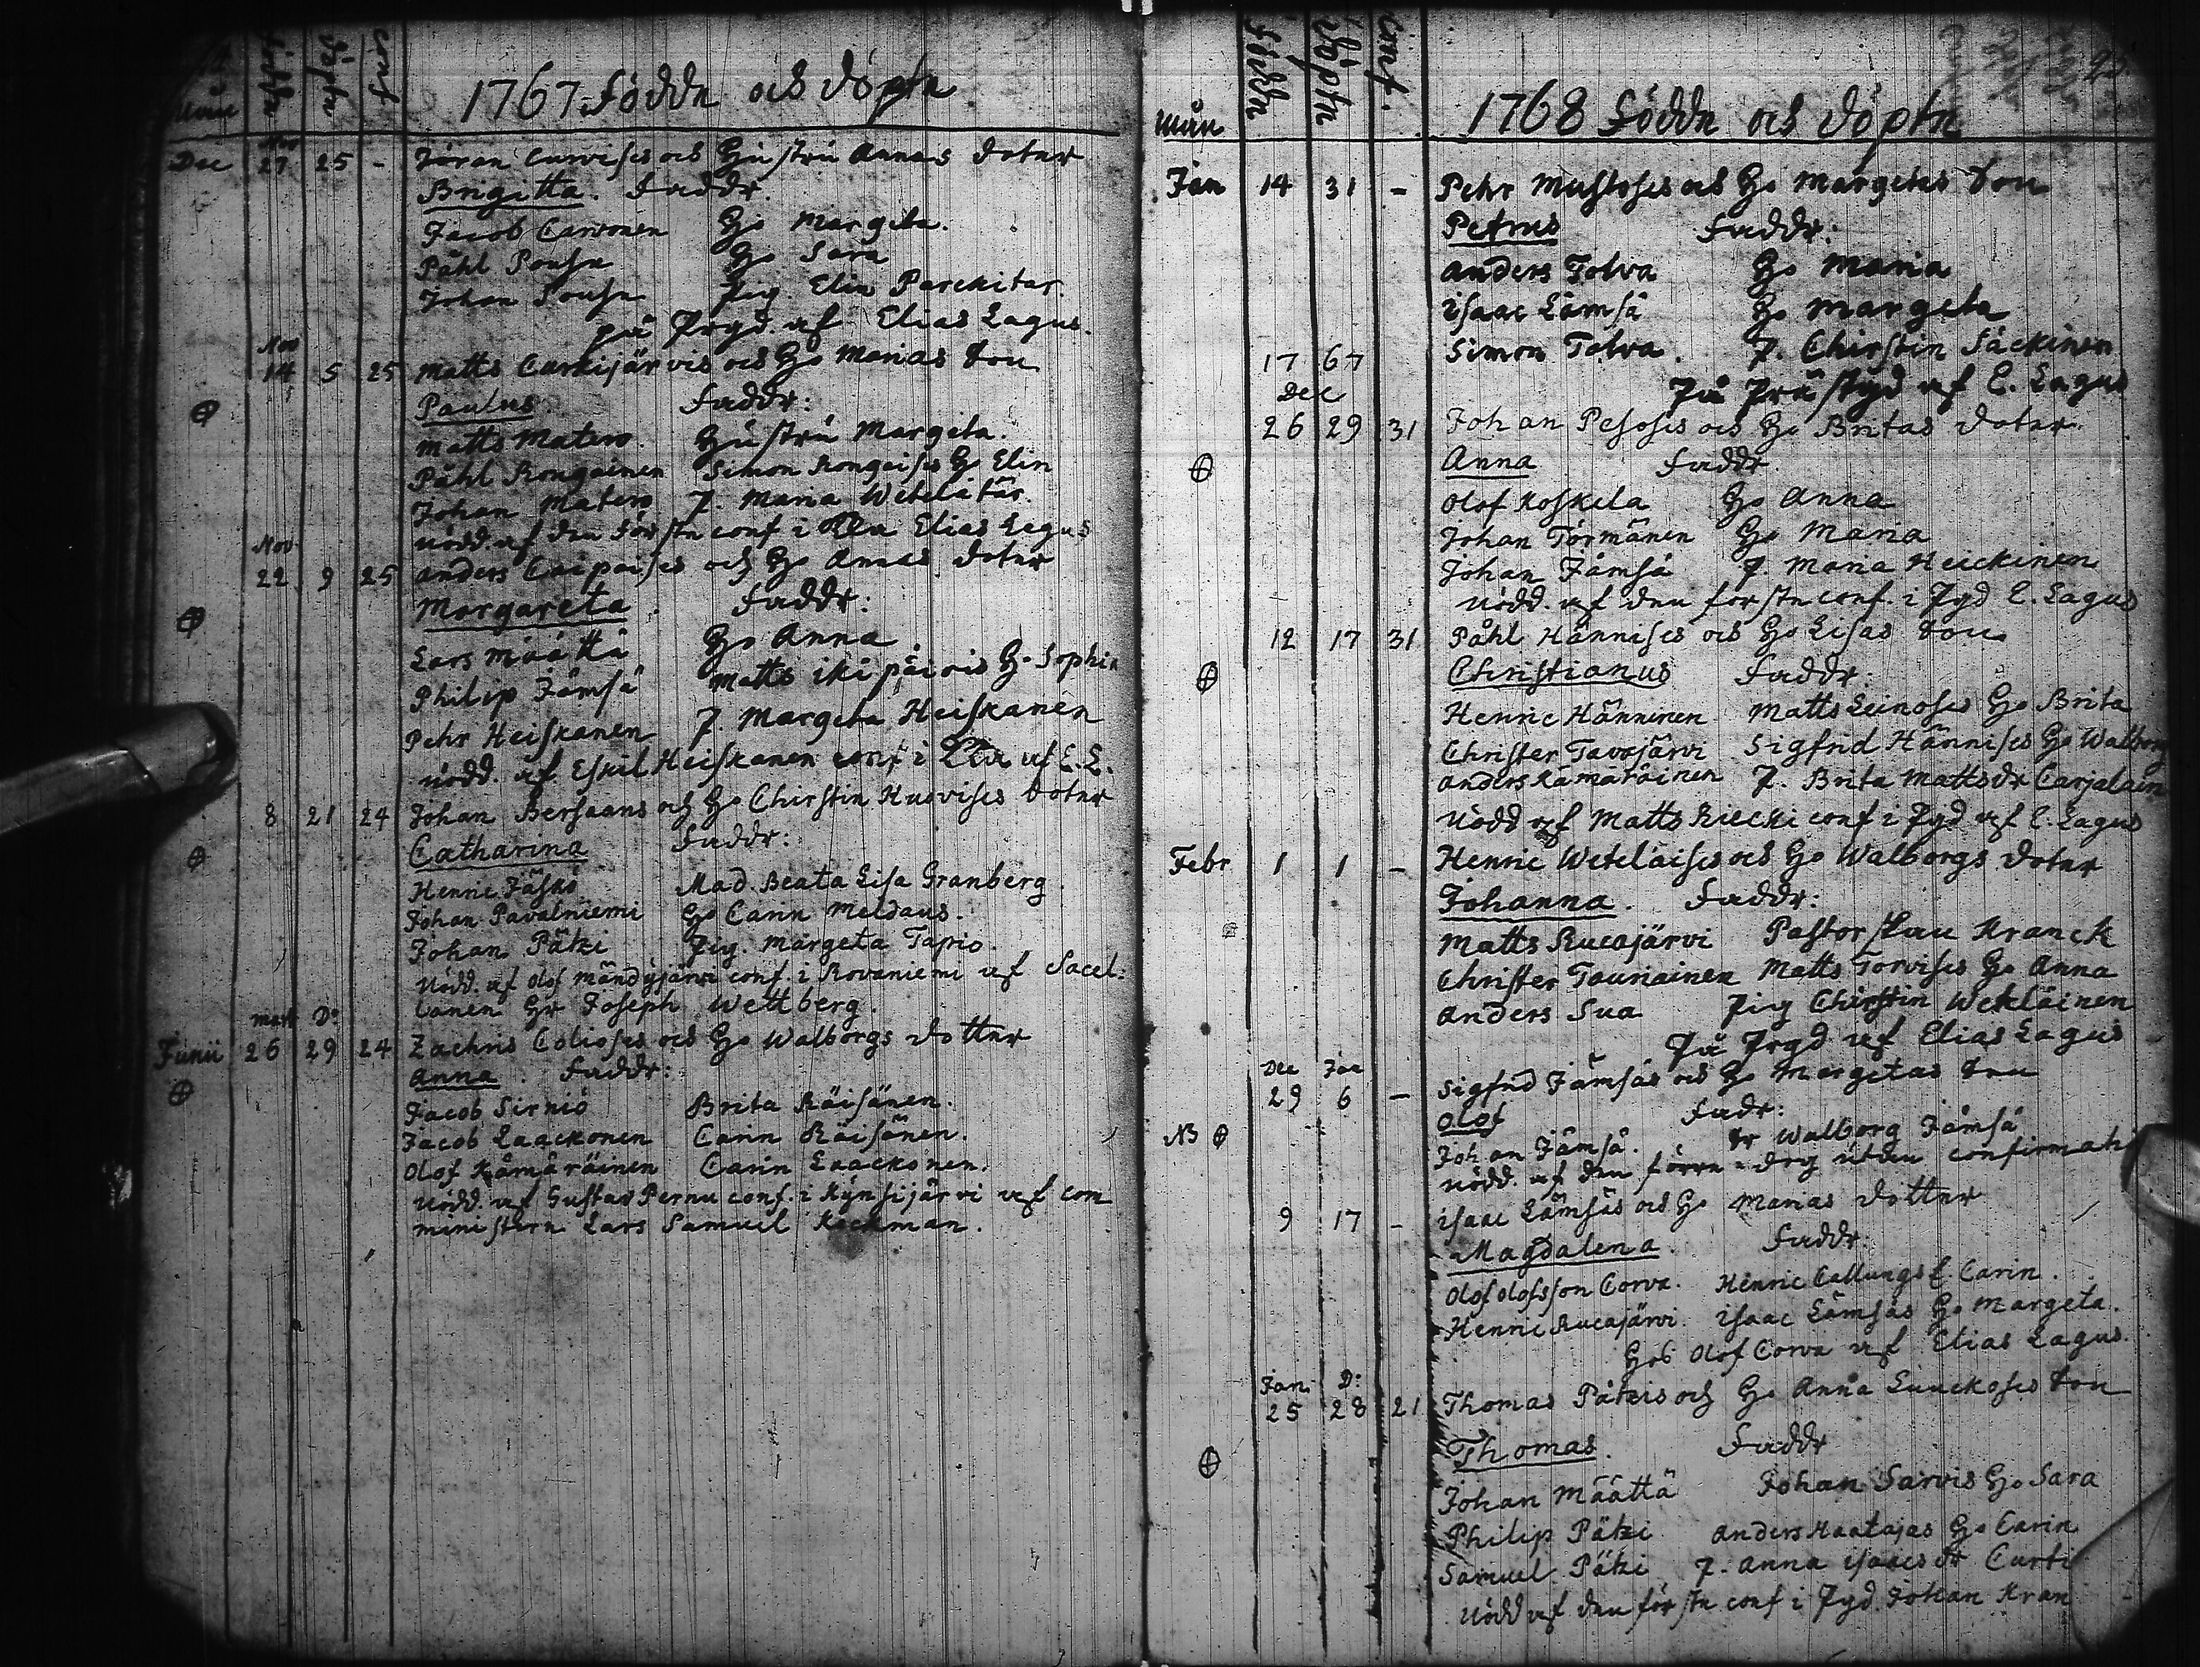 Födde Döpte conf
1767 Födde och döpte
Dec Nov 27 25 - Jöran Curvises och Hustru Annas doter
Brigitta. Faddr.
Jacob Carvonen Hs Margeta.
Påhl Pousu Hs Sara
Johan Pousu Pig. Elin Parckitar.
på Prgd. af Elias Lagus.
Nov
14 5 25 Matts Carkijärvis och Hs Marias son
Paulus Faddr:
Matts Matero. Hustru Margeta.
Påhl Rongainen Simon Rongaises Hs Elin
Johan Matero P. Maria Wetelätär
nödd. af den förste conf i Elias Lagus
Nov
22 9 25 Anders Caipaises och Hs Annas doter
Margareta Faddr:
Lars Määttä Hs Anna
Philip Jämsä Matts ikipäivis Hs Sophia
Pehr Heiskanen P. Margeta Heiskanen
nödd. af Eskil Heiskanen conf i af E. L.
8 21 24 Johan Bersaans och Hs Chirstin Kurvises doter
Catharina Faddr:
Henric Jäskö Mad. Beata Lisa Granberg
Johan Pavalniemi Hs Carin Meldaus.
Johan Pätzi Pig. Margeta Tapio.
Nödd. af Olof Mändyjärvi conf. i Rovaniemi af Sacel:
lanen Hr Joseph Wettberg.
Mart Do
Junii 26 29 24 Zachris Colioses och Hs Walborgs dotter
Anna. Faddr:
Jacob Sirniö Brita Räisänen.
Jacob Laackonen Carin Räisänen.
Olof Kämäräinen Carin Laackonen.
Nödd. af Gustav Pernu conf. i Kynsijärvi af com
ministern Lars Samuel Keckman.
mån Födde Döpte conf.
1768 Födde och döpte
Jan 14 31 - Pehr Mustoses och Hs Margetas son
Petrus Faddr:
Anders Tolva Hs Maria
Isaac Lämsä Hs Margeta
Simon Tolva. P. Chirstin Säckinen
På Prästgd af E. Lagus
1767
Dec
26 29 31 Johan Pesoses och Hs Britas doter.
Anna Faddr
Olof Koskela Hs Anna
Johan Törmänen Hs Maria
Johan Jämsä P. Maria Heickinen
nödd. af den förste conf. i Pgd E. Lagus
12 17 31 Påhl Hännises och Hs Lisas son
Christianus Faddr.
Henric Hänninen Matts Leinoses Hs Brita
Christer Tavajärvi Sigfrid Hännises Hs Walborg
Anders Kämäräinen P. Brita Mattsdr Carjalain
Nödd af Matts Riecki conf i Pgd af E. Lagus
Febr 1 1 - Henric Weteläises och Hs Walborgs doter
Johanna. Faddr:
Matts Rucajärvi Pastorskan Kranck
Christer Tauriainen Matts Torvises Hs Anna
Anders Sua Pig Chirstin Weteläinen
På Prgd af Elias Lagus
Dec Jan
29 6 - Sigfrid Jämsäs och Hs Margetas son
Olof Fadr:
NB Johan Jämsä. dr Walborg Jämsä
nödd. af den förre - dog utan confirmati
9 17 - Isaac Lämsäs och Hs Marias dotter
Magdalena. Faddr.
Olof Olofsson Corva. Henric Callungs E. Carin.
Henric Rucajärvi. Isaac Lämsäs Hs Margeta.
Hos Olof Corva af Elias Lagus.
Jan. Do
25 28 21 Thomas Pätzis och Hs Anna Luuckoses son
Thomas. Faddr
Johan Määttä Johan Sarvis Hs Sara
Philip Pätzi Anders Haatajas Hs Carin
Samuel Pätzi P. Anna Isaacsdr Curti
Nödd af den förste conf i Pgd. Johan Kran